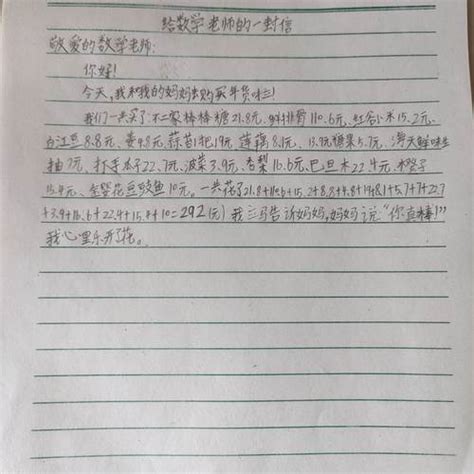 给数学老师的一封信
敬爱的数学老师:
你好!
今天,我和我的妈妈去购买年货啦!
我们一共买了:不二家棒棒糖21.8元、斜排骨110.6元、红谷小米15.2元、
白江豆8.8元、姜4.8元、蒜苔1把19元、莲藕8.1元、糖果5.7元、海天鲜味生
抽7元、打手瓜子22.7元、菠菜3.9元、香梨16.6元、巴旦木22.4元、橙子
15.4元、金鹭花豆豉鱼10元,一共花了21.8+110.6+15.2+8.8+4.8+19+8.1+5.7+7+22.7
+3.9+16.6+22.4+15.4+10=292(元)我立马告诉妈妈,妈妈说:“你真棒!”
我心里乐开了花。